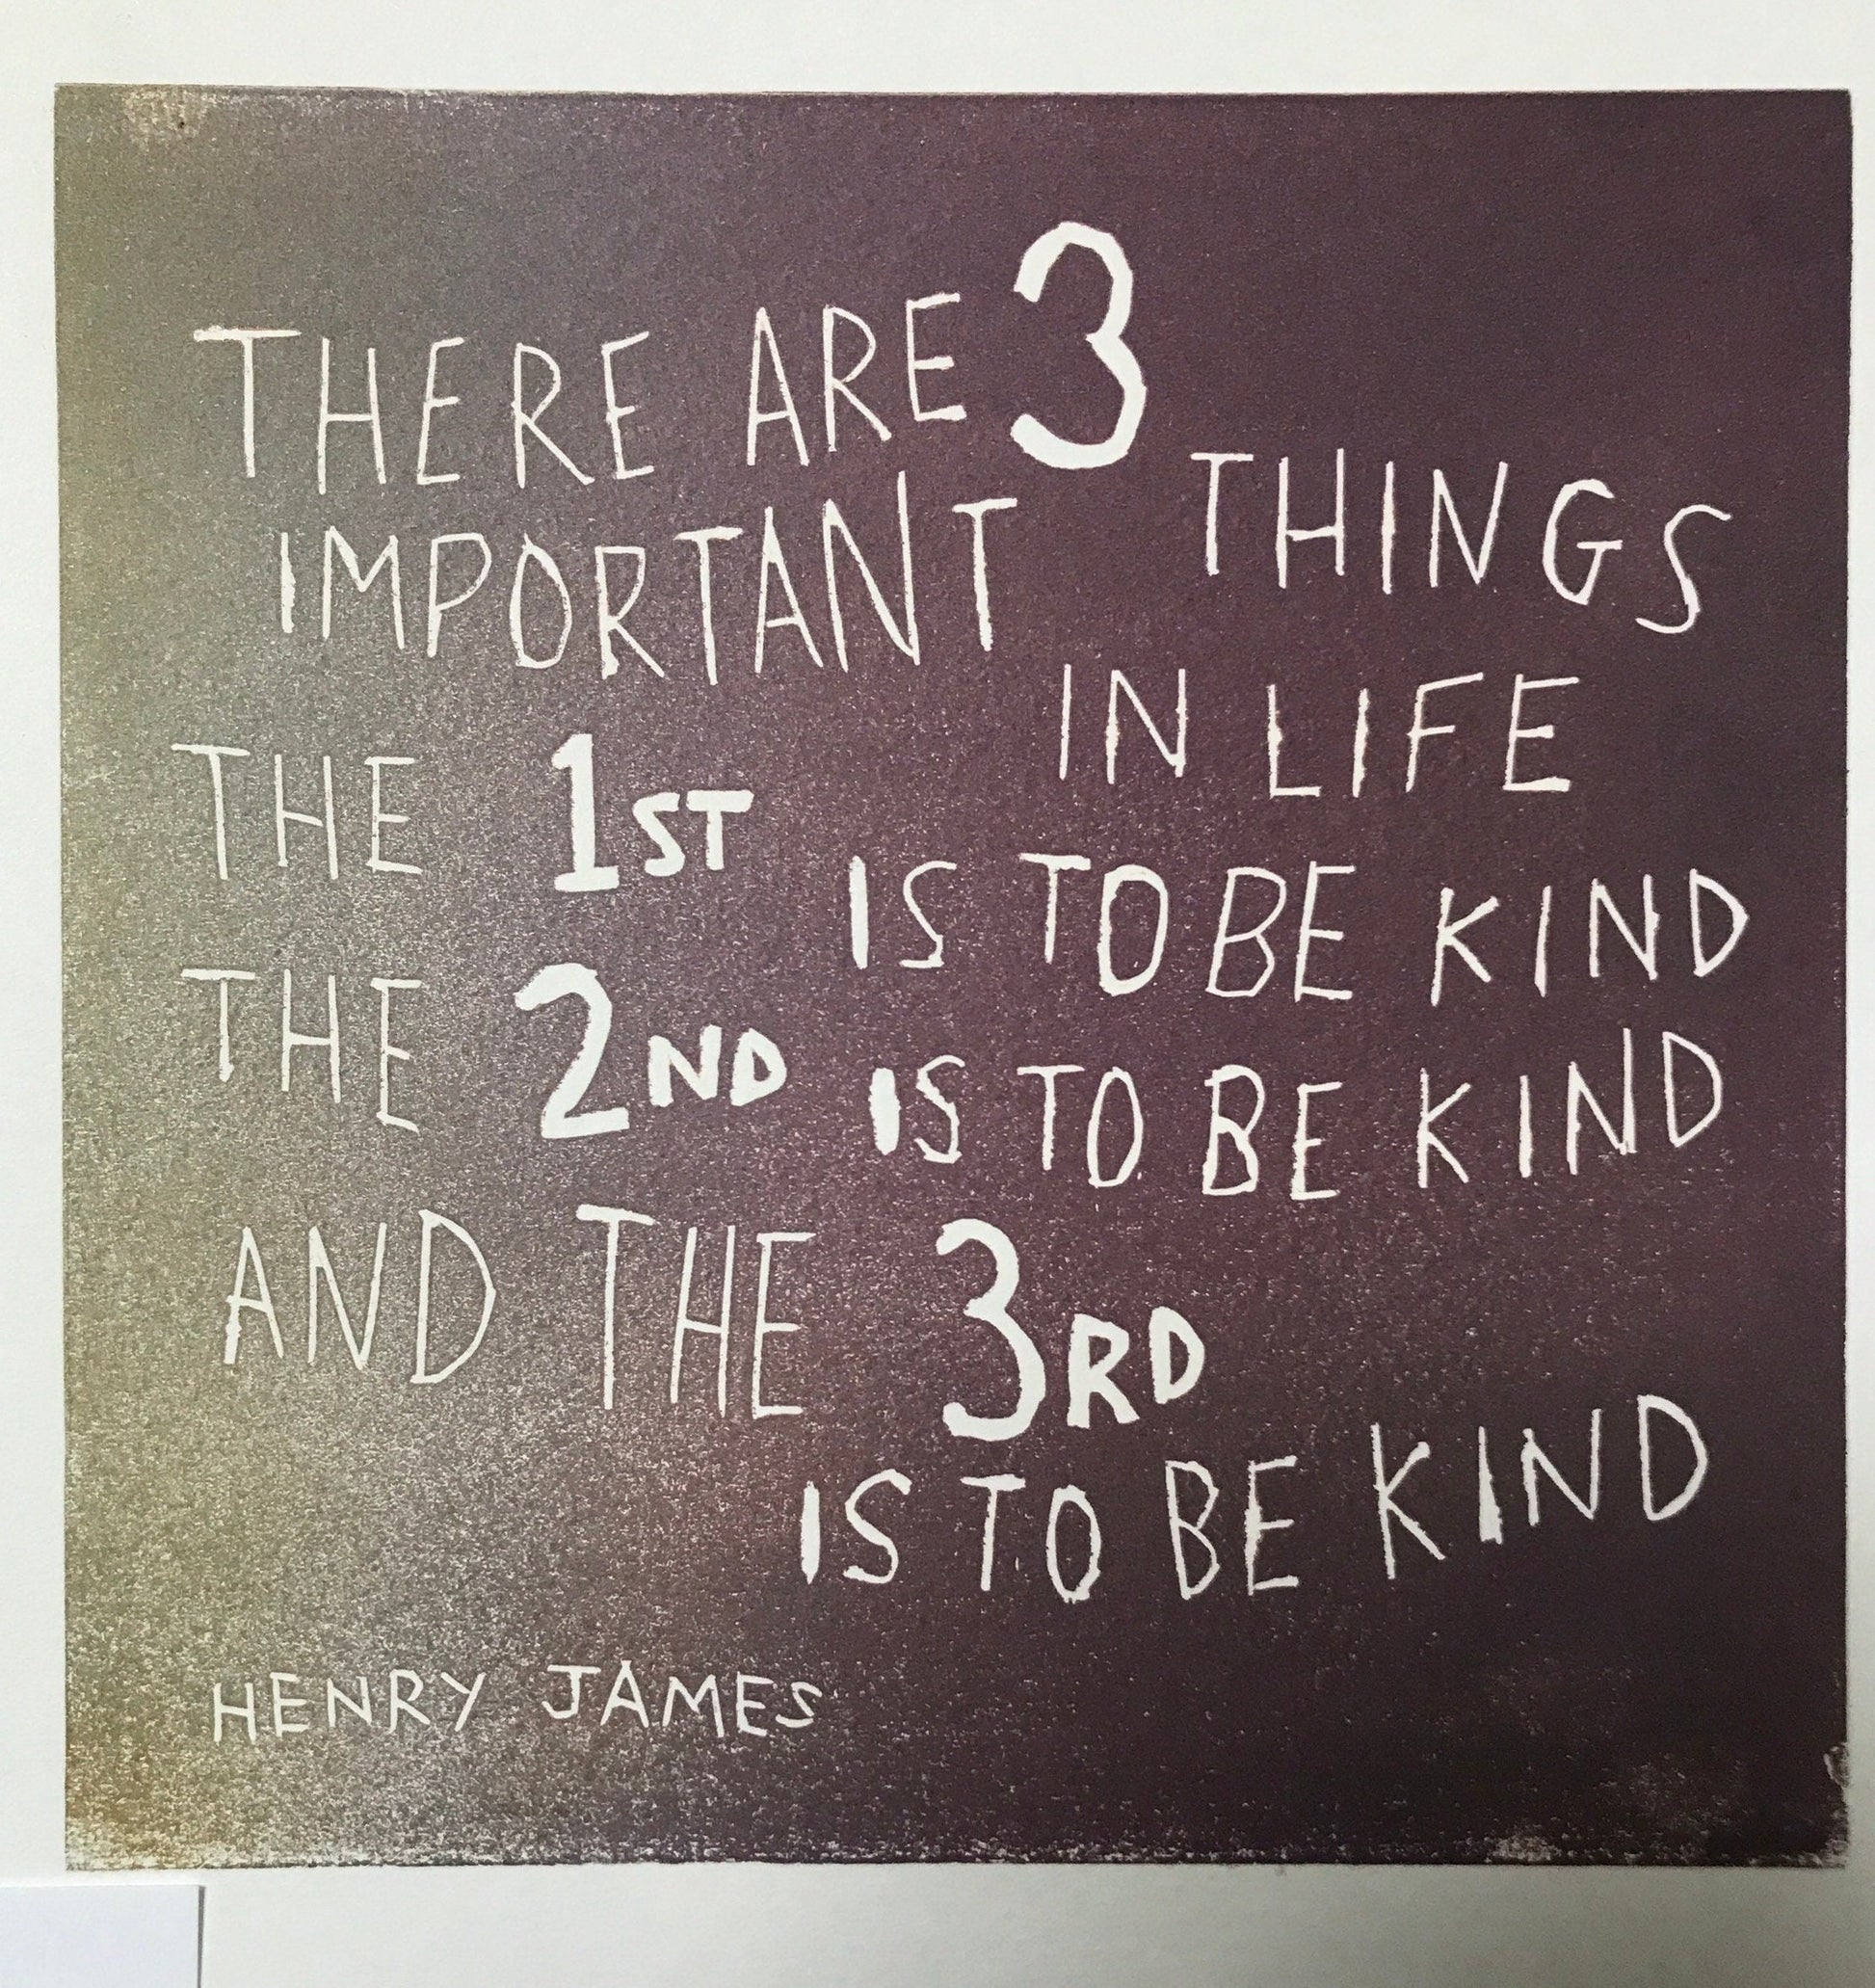 THERE ARE 3
IMPORTANT THINGS
IN LIFE
THE 1ST IS TO BE KIND
THE 2ND IS TO BE KIND
AND THE 3RD
IS TO BE KIND
HENRY JAMES